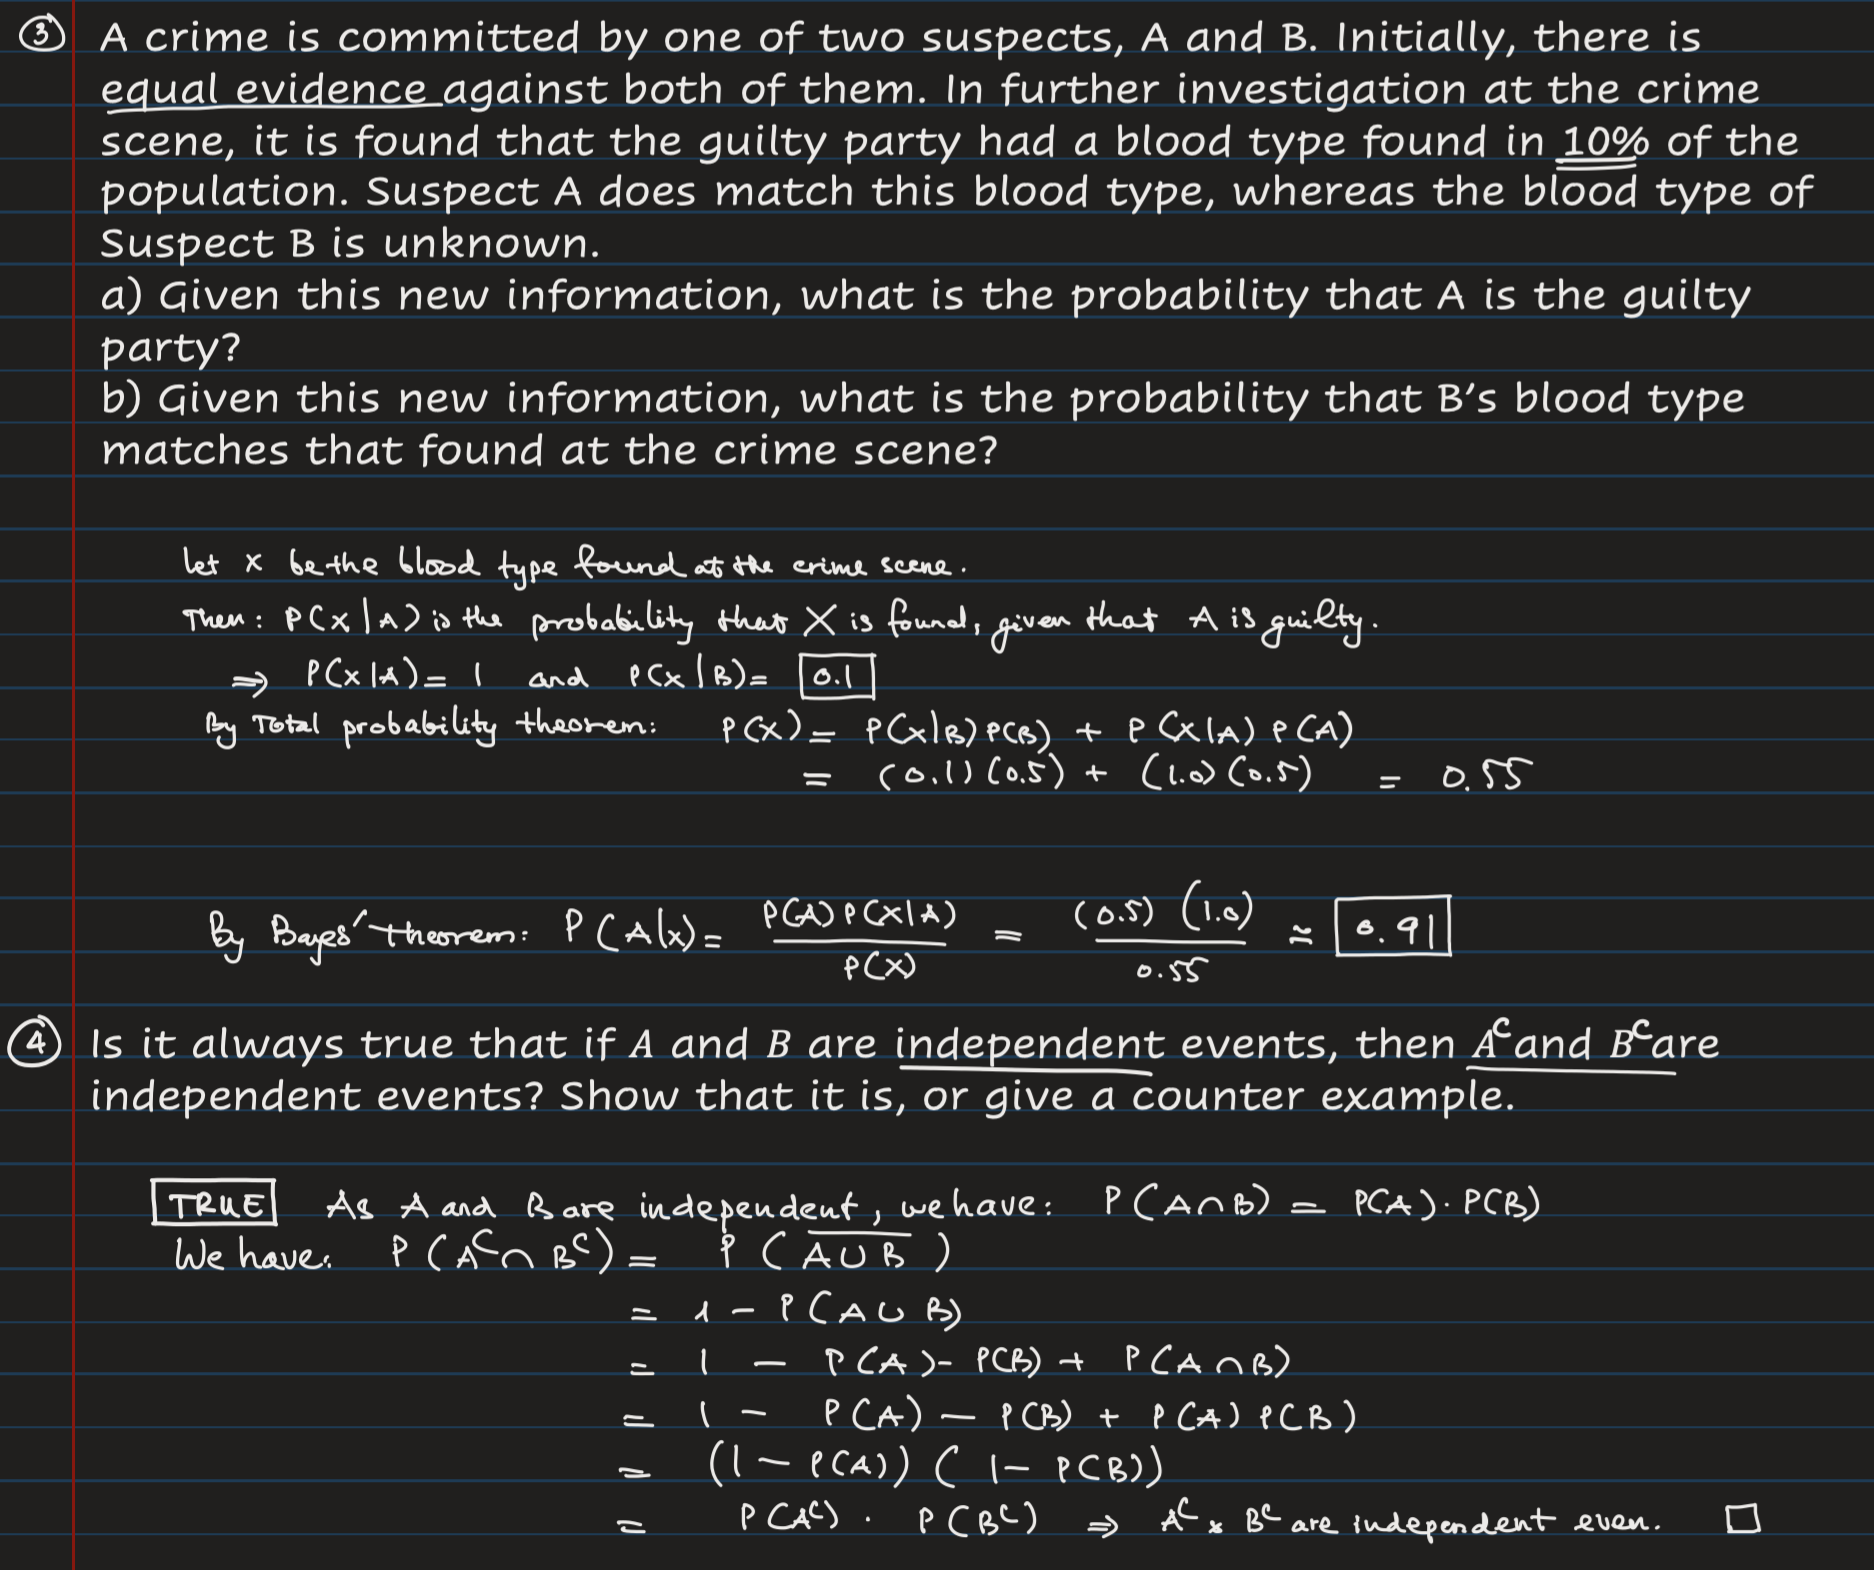 ③ A crime is committed by one of two suspects, A and B. Initially, there is
equal evidence against both of them. In further investigation at the crime
scene, it is found that the guilty party had a blood type found in 10% of the
population. Suspect A does match this blood type, whereas the blood type of
Suspect B is unknown.
a) Given this new information, what is the probability that A is the guilty
party?
b) Given this new information, what is the probability that B's blood type
matches that found at the crime scene?
Let x be the blood type found at the crime scene.
Then: P(X|A) is the probability that X is found, given that A is guilty.
⇒ P(X|A) = 1 and P(X|B) = 0.1
By Total probability theorem: P(X) = P(X|B) P(B) + P(X|A) P(A)
= (0.1) (0.5) + (1.0) (0.5) = 0.55
By Bayes' theorem: P(A|x) = P(A) P(X|A) / P(X) = (0.5) (1.0) / 0.55 ≈ 0.91
④ Is it always true that if A and B are independent events, then Aᶜ and Bᶜ are
independent events? Show that it is, or give a counter example.
TRUE As A and B are independent, we have: P(A∩B) = P(A). P(B)
We have: P(Aᶜ∩Bᶜ) = P(A̅ ̅U̅ ̅B̅)
= 1 - P(A∪B)
= 1 - P(A) - P(B) + P(A∩B)
= 1 - P(A) - P(B) + P(A) P(B)
= (1 - P(A)) (1 - P(B))
= P(Aᶜ) . P(Bᶜ) ⇒ Aᶜ & Bᶜ are independent even. □